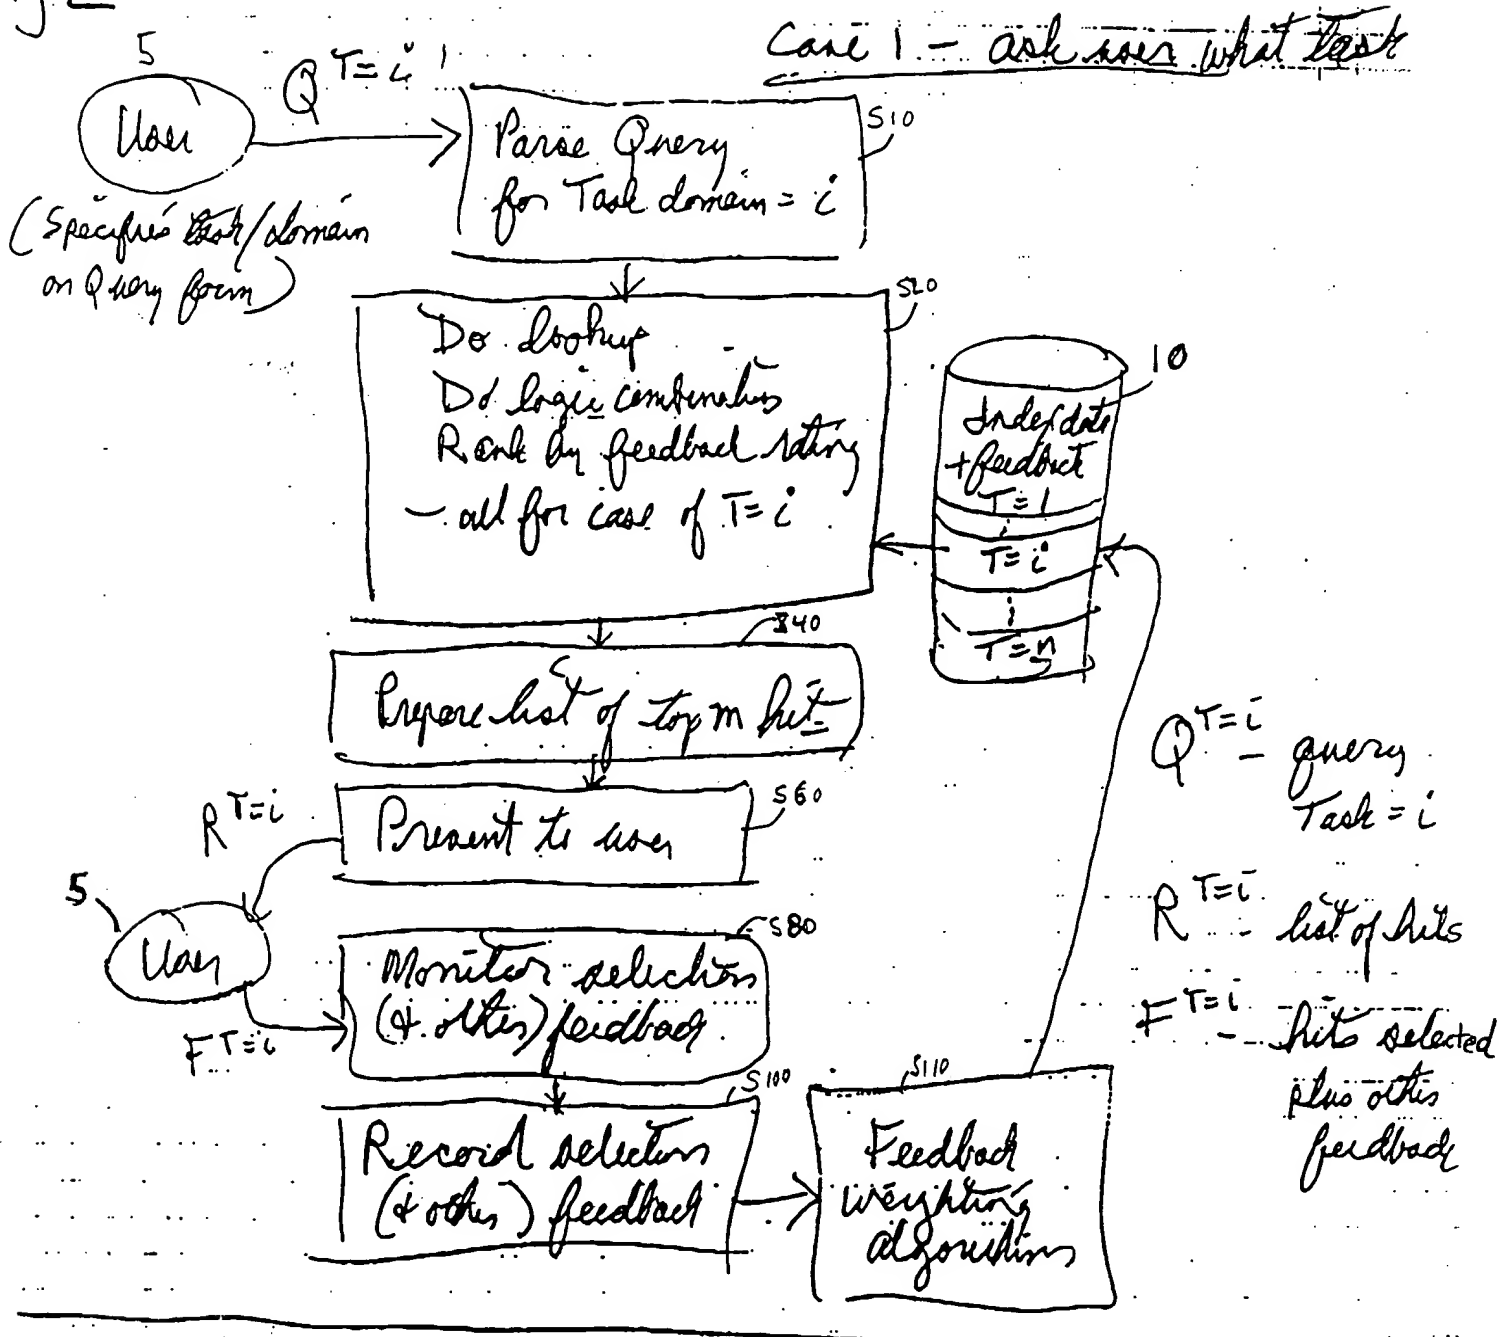 Case 1 - ask user what task
5
Q T=i
User
(Specifies task/domain
on Query form)
Parse Query
for Task domain = i
S10
Do lookup
Do logic combinations
Rank by feedback rating
- all for case of T=i
S20
10
Index data
+ feedback
T=1
T=i
T=n
S40
Prepare list of top m hits
S60
Present to user
R T=i
5
User
F T=i
S80
Monitor selections
(+ other) feedback
S100
Record selections
(+ other) feedback
S110
Feedback
weighting
algorithms
Q T=i - query
Task = i
R T=i - list of hits
F T=i - hits selected
plus other
feedback